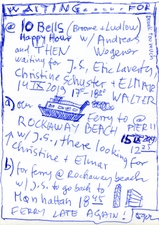 WAITING........FOR
@ 10 Bells (Broome + Ludlow)
Happy Hour w/ Andreas
and THEN Wagener
waiting for J.S., Eric Laverty,
Christine Schuster + ELMAR
14 IX 2019 17-18 WALTER
a) on ferry to @
ROCKAWAY BEACH PIER 11
w/ J.S., there looking for
Christine + Elmar
b) for ferry @ Rockaway beach
w/ J.S. to go back to
Manhattan 18 45
FERRY LATE AGAIN!